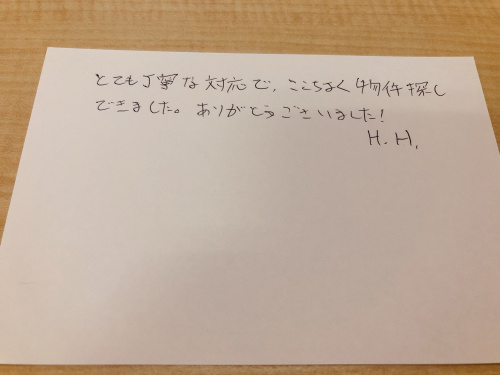 とても丁寧な対応で、ここちよく物件探し
できました。ありがとうございました!
H.H.